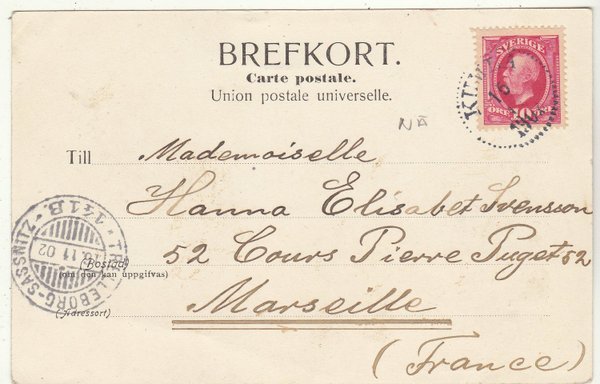 BREFKORT.
Carte postale.
Union postale universelle.
SVERIGE
10
ÖRE
16
NÄ
Till
Mademoiselle
Hanna Elisabet Svensson
52 Cours Pierre Puget 52
(Bostad)
(om den kan uppgifvas)
Marseille
(Adressort)
(France)
141 B.
11 02
TRELLEBORG-SASSNITZ